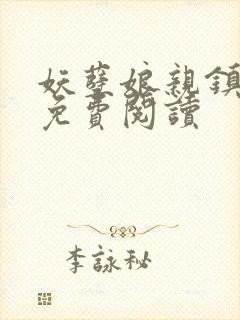 妖孽娘親鎮
免費閱讀
李詠秘